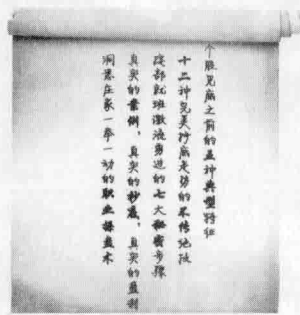 个股见底之前的五种典型特征
十三种完美抄底走势的不传绝技
按部就班激流勇进的七大秘密步骤
真实的案例，真实的抄底，真实的盈利
洞悉庄家一举一动的职业操盘术